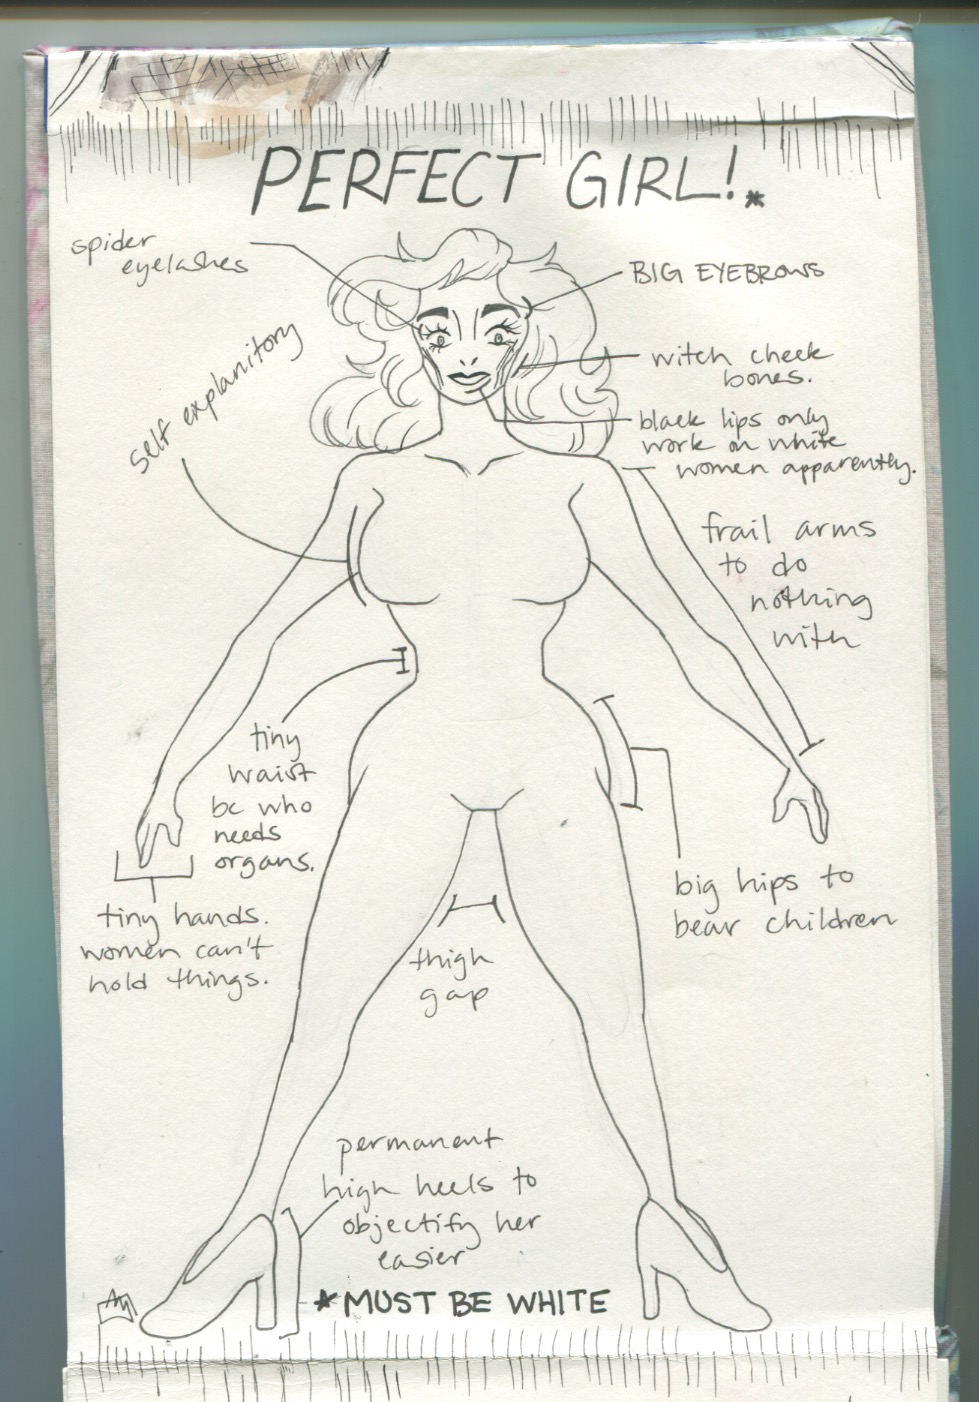 PERFECT GIRL!*
spider
eyelashes
BIG EYEBROWS
self explanitory
witch cheek
bones.
black lips only
work on white
women apparently.
frail arms
to do
nothing
with
tiny
waist
bc who
needs
organs.
big hips to
bear children
tiny hands.
women can't
hold things.
thigh
gap
permanent
high heels to
objectify her
easier
*MUST BE WHITE